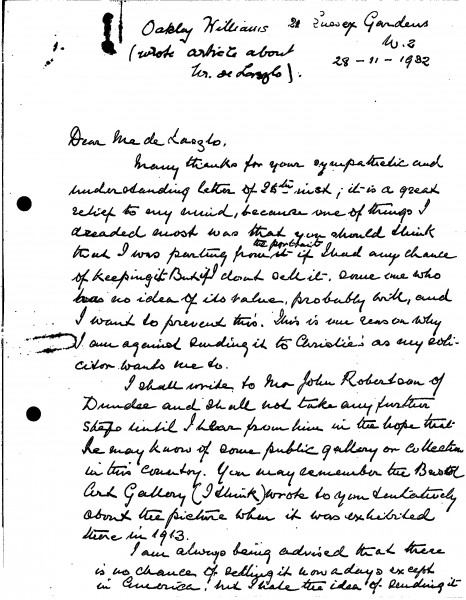 Oakley Williams 2 Sussex Gardens
(wrote article about W.2
Mr. de Laszlo). 28-11-1932
Dear Mr de Laszlo,
Many thanks for your sympathetic and
understanding letter of 26th inst; it is a great
relief to my mind, because one of things I
dreaded most was that you should think
that I was parting from the portrait if I had any chance
of keeping it But if I dont sell it. some one who
has no idea of its value, probably will, and
I want to prevent this. This is one reason why
I am against sending it to Christie's as my soli-
citor wants me to.
I shall write to Mr John Robertson of
Dundee and shall not take any further
steps until I hear from him in the hope that
he may know of some public gallery or collection
in this country. You may remember the Bristol
Art Gallery (I think) wrote to you tentatively
about the picture when it was exhibited
there in 1913.
I am always being advised that there
is no chance of selling it now a days except
in America, but I hate the idea of sending it